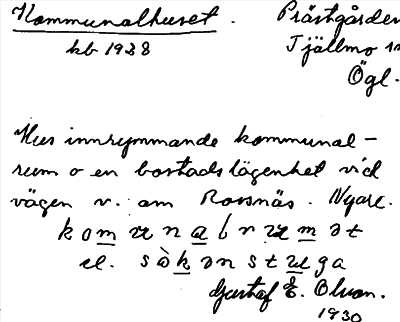 Kommunalhuset. Prästgården
kb 1928 Tjällmo sn
Ögl.
Hus innrymmande kommunal-
rum o en bostadslägenhet vid
vägen v. om Rossnäs. Nyare.
el.
Gustaf E. Olsson.
1930